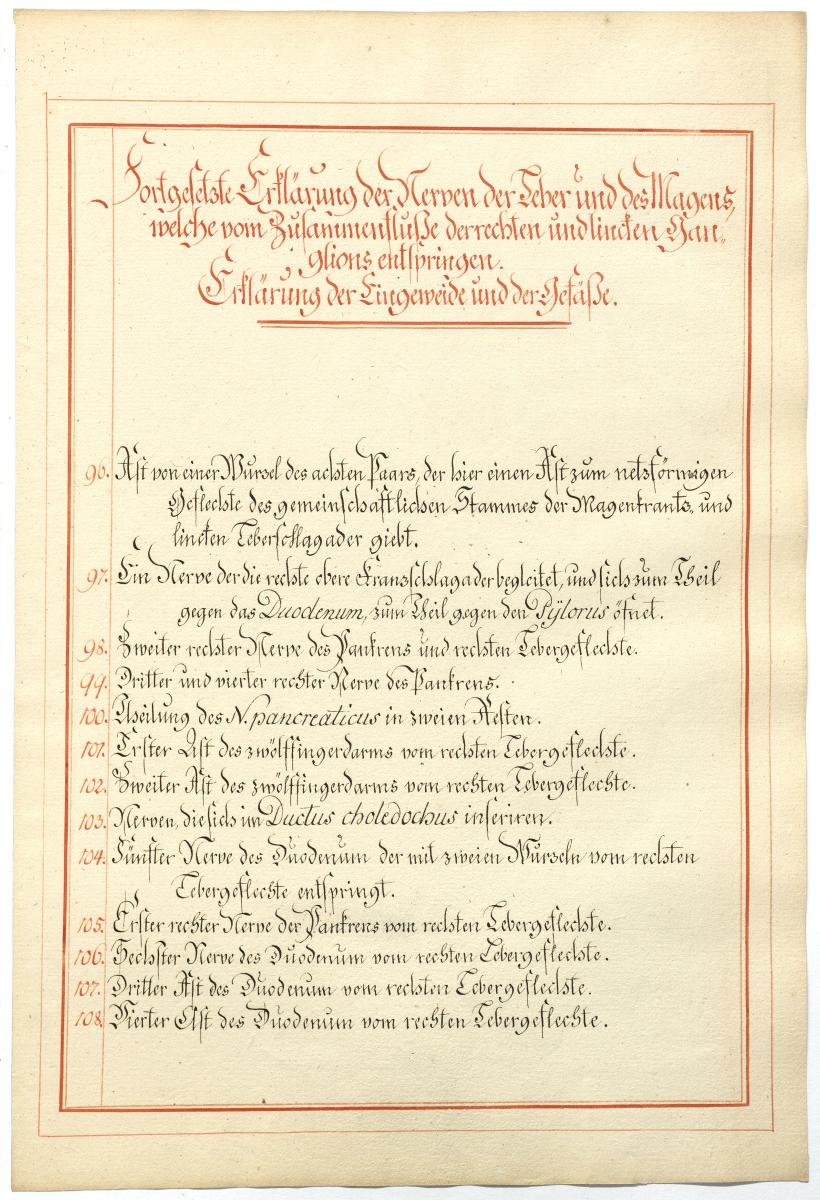 Fortgesetzte Erklärung der Nerven der Leber und des Magens,
welche vom Zusammenfluße der rechten und lincken Gan„
glions entspringen.
Erklärung der Eingeweide und der Gefäße.
96. Ast von einer Wurzel des achten Paars, der hier einen Ast zum netzförmigen
Geflechte des gemeinschäftlichen Stammes der Magenkrantz, und
lincken Leberschlagader giebt.
97. Ein Nerve der die rechte obere Kranzschlagader begleitet, und sich zum Theil
gegen das Duodenum, zum Theil gegen den Pÿlorus öfnet.
98. Zweiter rechter Nerve des Pankrens und rechten Lebergeflechte.
99. Dritter und vierter rechter Nerve des Pankrens.
100. Theilung des N. pancreaticus in zweien Aesten.
101. Erster Ast des zwölffingerdarms vom rechten Lebergeflechte.
102. Zweiter Ast des zwölffingerdarms vom rechten Lebergeflechte.
103. Nerven, die sich im Ductus choledochus inseriren.
104. Fünfter Nerve des Duodenum der mit zweien Wurzeln vom rechten
Lebergeflechte entspringt.
105. Erster rechter Nerve der Pankrens vom rechten Lebergeflechte.
106. Sechster Nerve des Duodenum vom rechten Lebergeflechte.
107. Dritter Ast des Duodenum vom rechten Lebergeflechte.
108. Vierter Ast des Duodenum vom rechten Lebergeflechte.